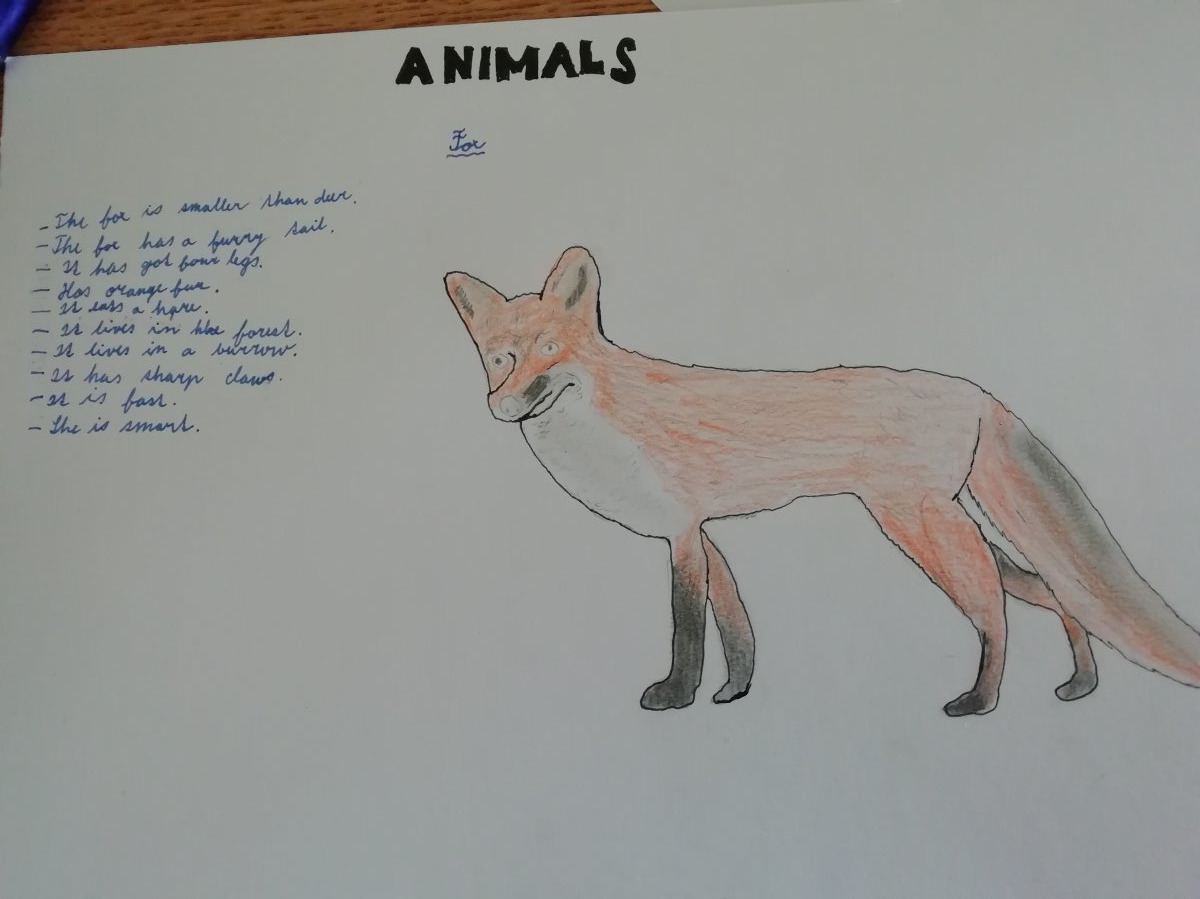 ANIMALS
Fox
- The fox is smaller than deer.
- The fox has a furry tail.
- It has got four legs.
- Has orange fur.
- It eats a hare.
- It lives in the forest.
- It lives in a burrow.
- It has sharp claws.
- It is fast.
- She is smart.